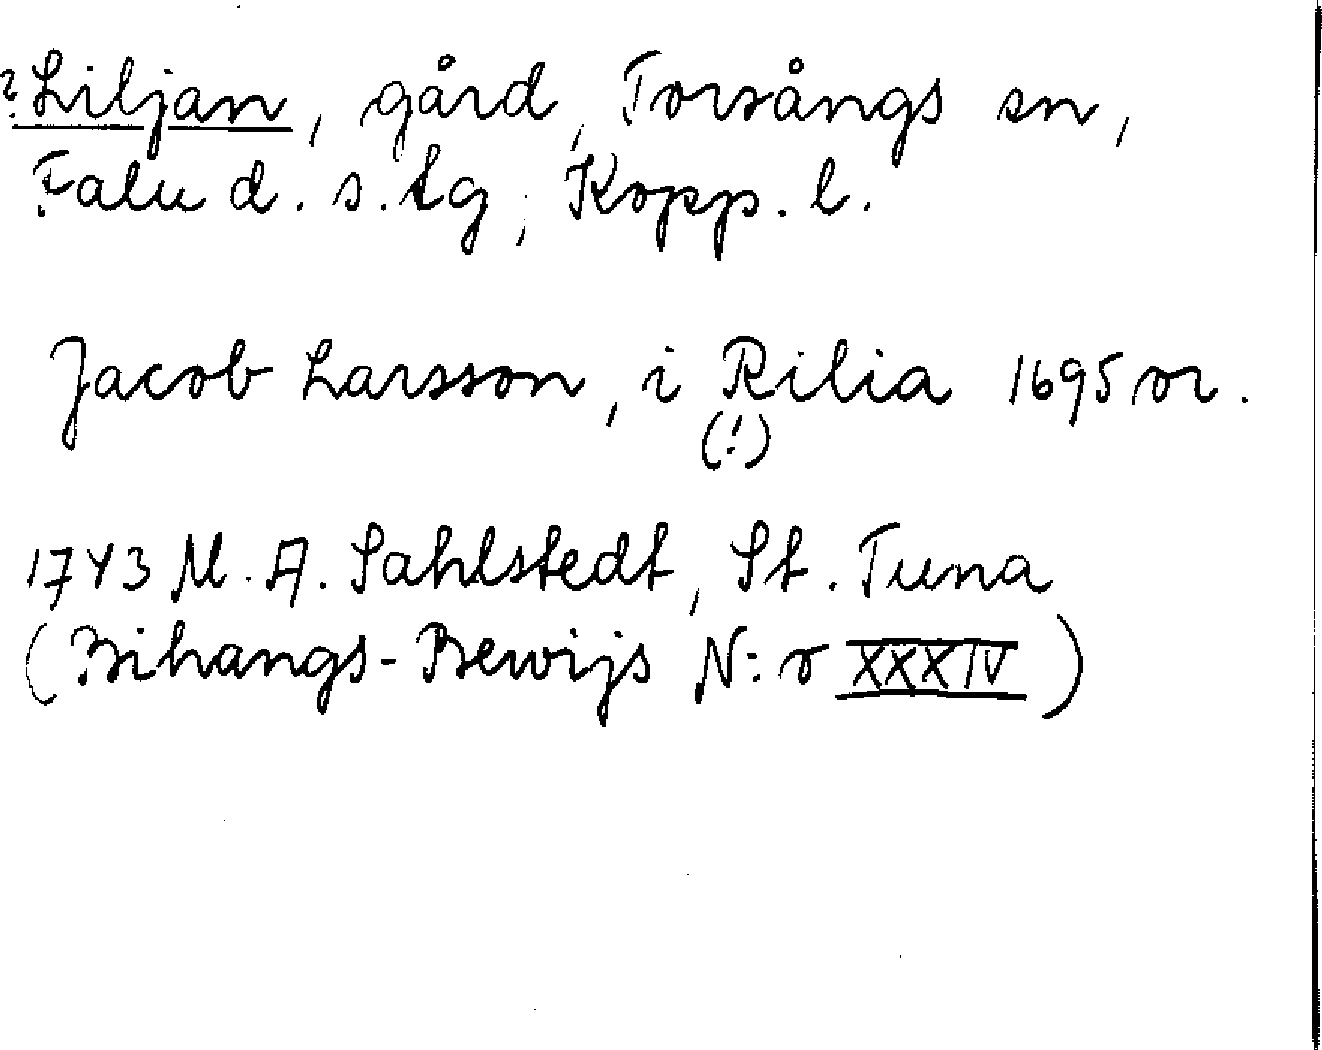 ? Liljan, gård, Torsångs sn,
Falu d. s. tg, Kopp. l.
Jacob Larsson, i Rilia 1695 or.
(!)
1743 M. A. Sahlstedt, St. Tuna
(Bihangs-Bewijs N:o XXXIV)